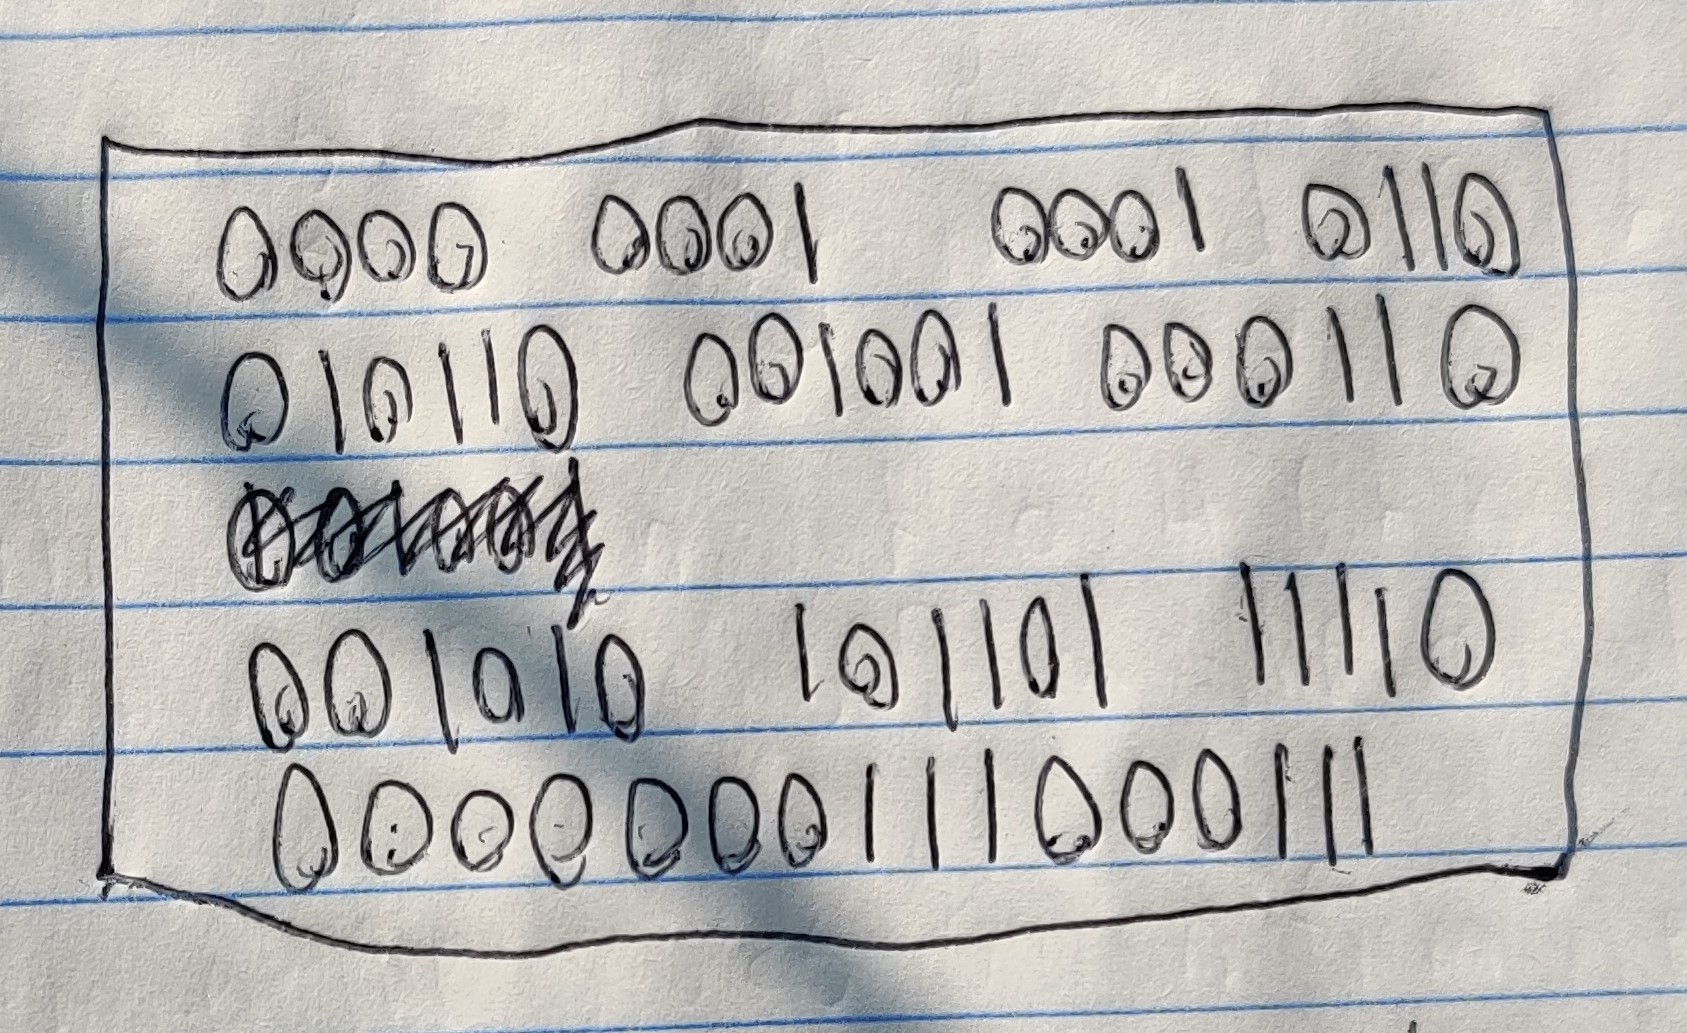 0000 0001 0001 0110
010110 001001 000110
001010 101101 11110
0000000111000111